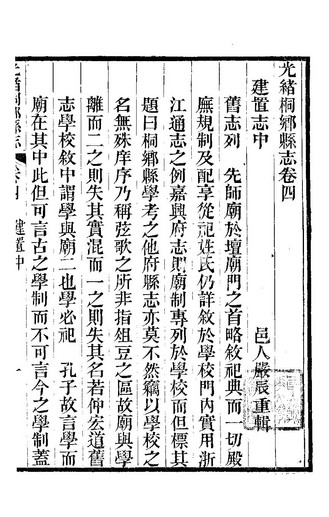 光緒桐鄉縣志卷四
邑人嚴辰重輯
建置志中
舊志列 先師廟於壇廟門之首略敘祀典而一切殿
廡規制及配享從祀姓氏仍詳敘於學校門內實用浙
江通志之例嘉興府志則廟制專列於學校而但標其
題曰桐鄉縣學考之他府縣志亦莫不然竊以學校之
名無殊庠序乃稱弦歌之所非指俎豆之區故廟與學
離而二之則失其實混而一之則失其名若仲宏道舊
志學校敘中謂學與廟二也學必祀 孔子故言學而
廟在其中此但可言古之學制而不可言今之學制蓋
光緒桐鄉縣志
卷四 建置中
一